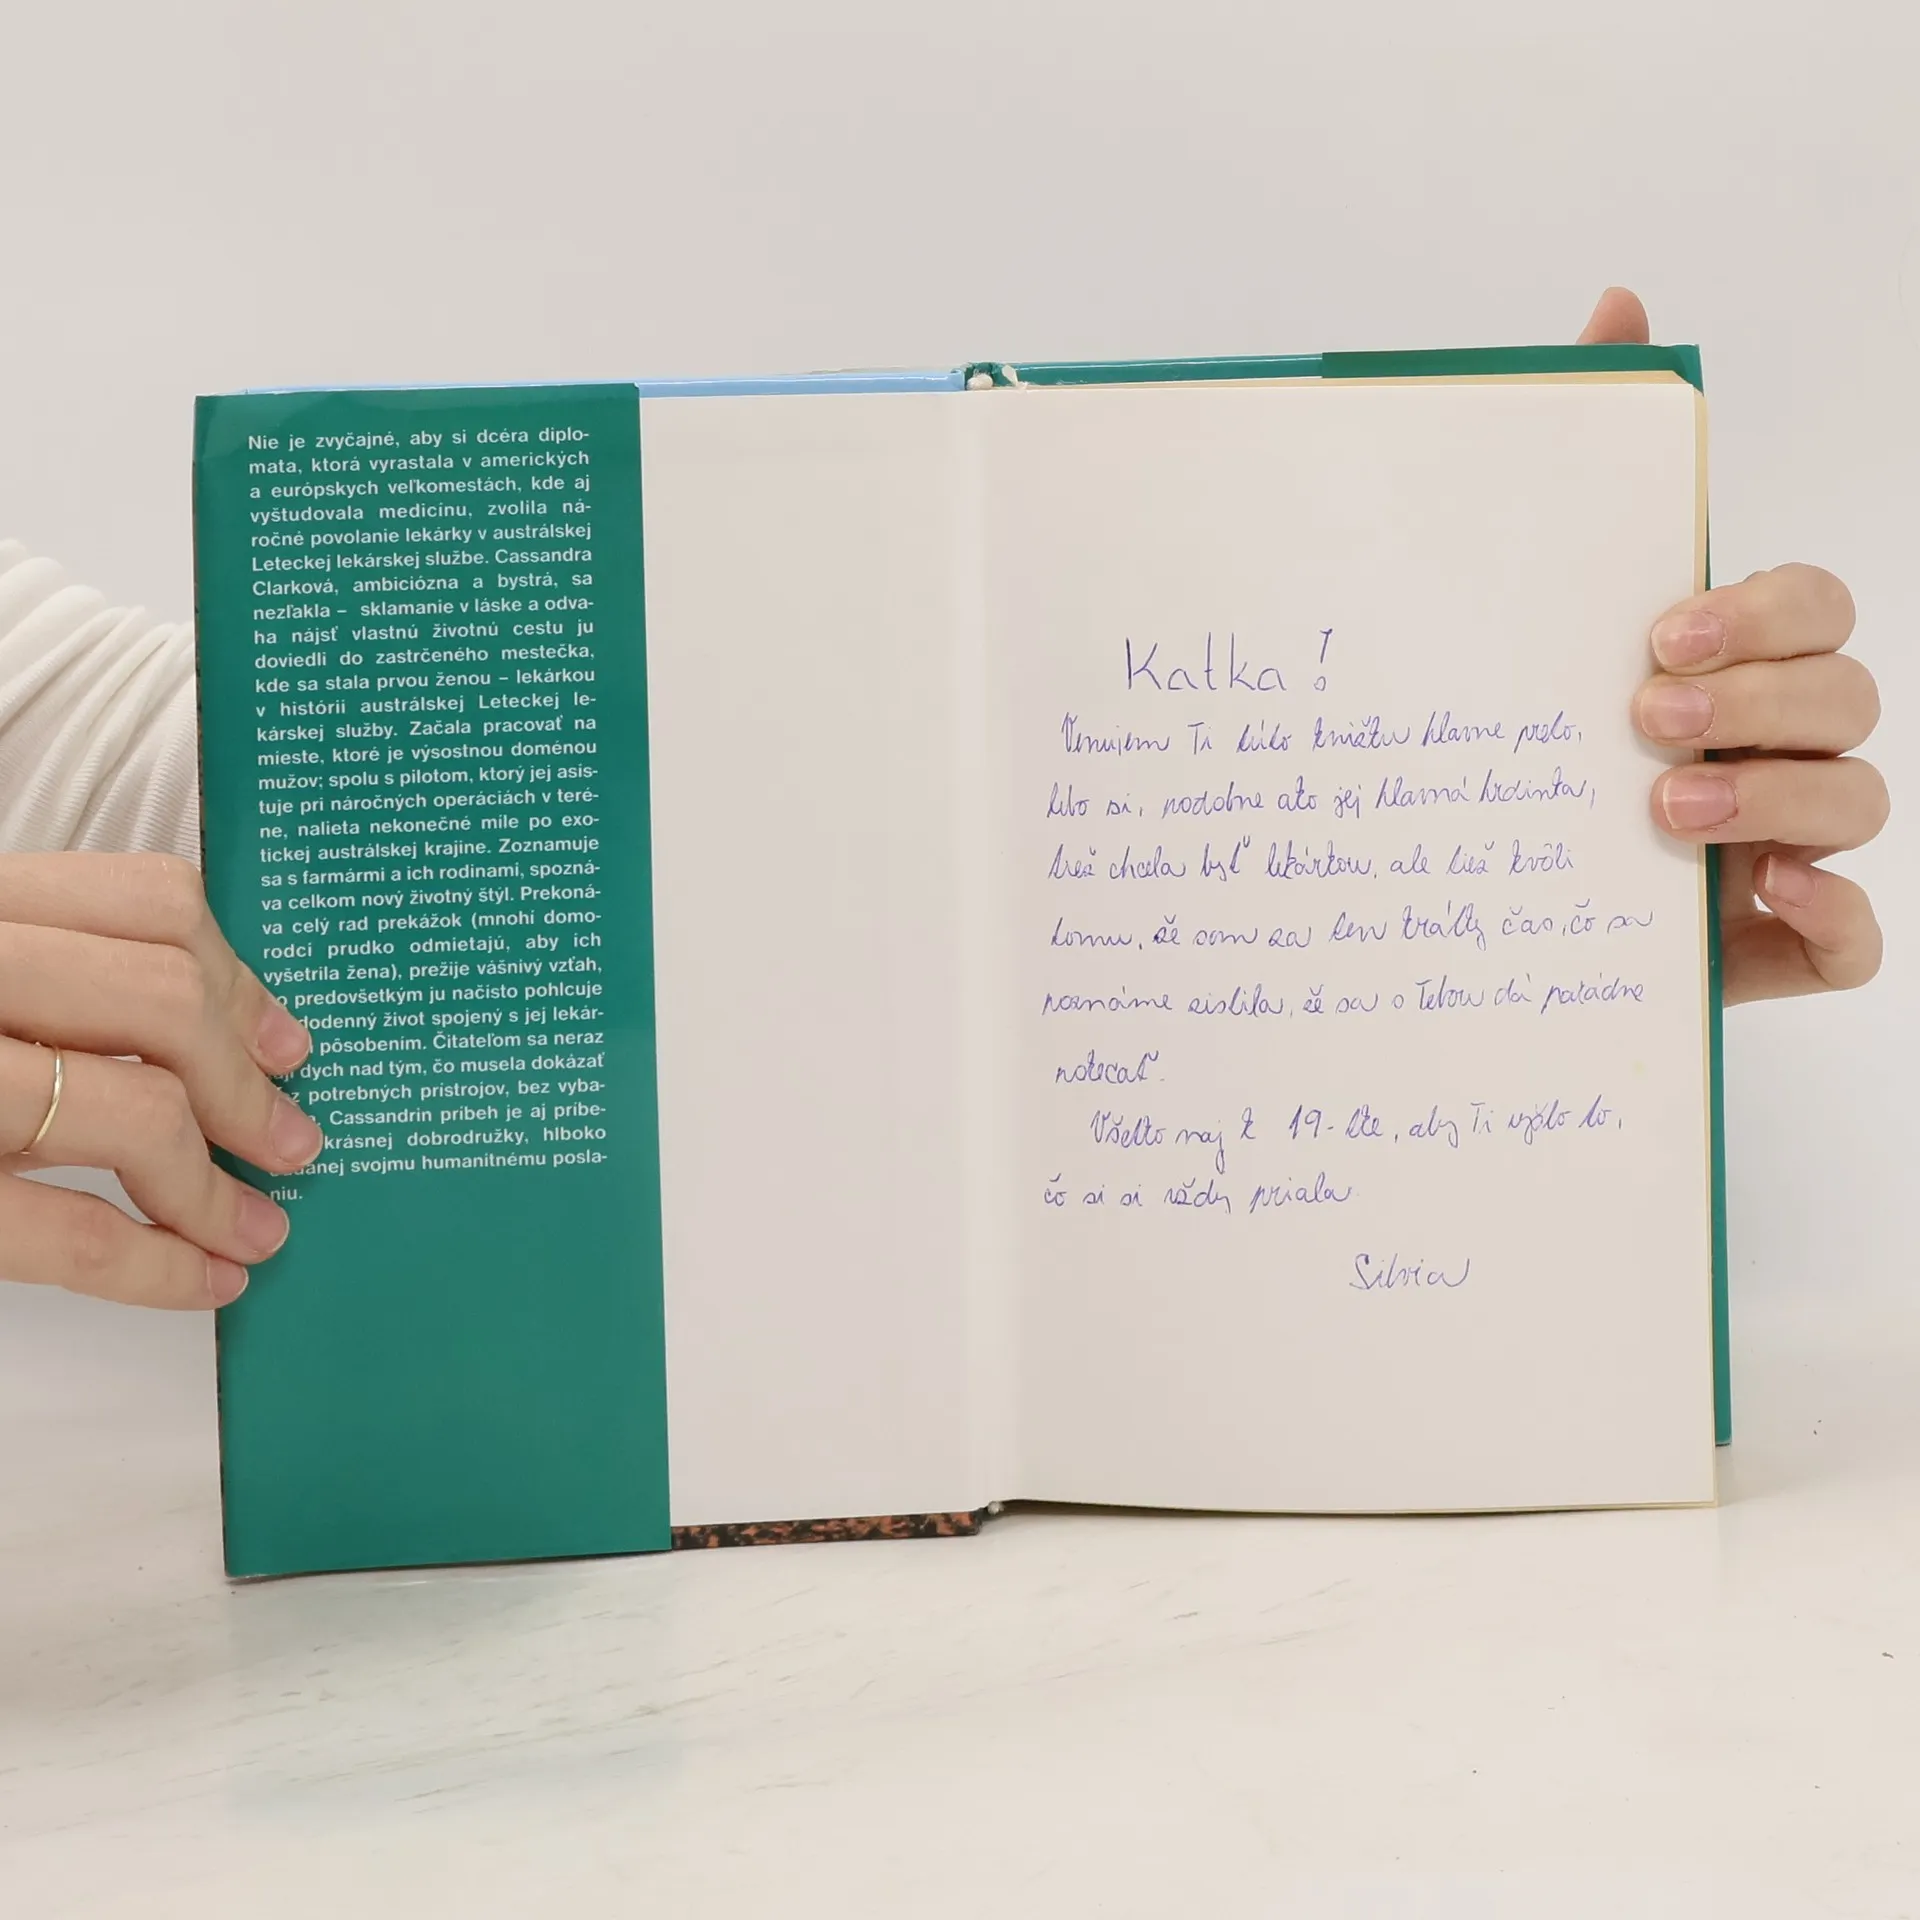 Nie je zvyčajné, aby si dcéra diplo-
mata, ktorá vyrastala v amerických
a európskych veľkomestách, kde aj
vyštudovala medicínu, zvolila ná-
ročné povolanie lekárky v austrálskej
Leteckej lekárskej službe. Cassandra
Clarková, ambiciózna a bystrá, sa
nezľakla – sklamanie v láske a odva-
ha nájsť vlastnú životnú cestu ju
doviedli do zastrčeného mestečka,
kde sa stala prvou ženou – lekárkou
v histórii austrálskej Leteckej le-
kárskej služby. Začala pracovať na
mieste, ktoré je výsostnou doménou
mužov; spolu s pilotom, ktorý jej asis-
tuje pri náročných operáciách v teré-
ne, nalieta nekonečné míle po exo-
tickej austrálskej krajine. Zoznamuje
sa s farmármi a ich rodinami, spozná-
va celkom nový životný štýl. Prekoná-
va celý rad prekážok (mnohí domo-
rodci prudko odmietajú, aby ich
vyšetrila žena), prežije vášnivý vzťah,
predovšetkým ju načisto pohlcuje
dodenný život spojený s jej lekár-
pôsobením. Čitateľom sa neraz
dych nad tým, čo musela dokázať
potrebných prístrojov, bez vyba-
Cassandrin príbeh je aj príbe-
krásnej dobrodružky, hlboko
svojmu humanitnému posla-
niu.
Katka!
Venujem Ti túto knižku hlavne preto,
lebo si, podobne ako jej hlavná hrdinka,
tiež chcela byť lekárkou, ale tiež kvôli
tomu, že som za ten krátky čas, čo sa
poznáme zistila, že sa s Tebou dá parádne
pokecať.
Všetko naj k 19-tke, aby Ti vyšlo to,
čo si si vždy priala.
Silvia